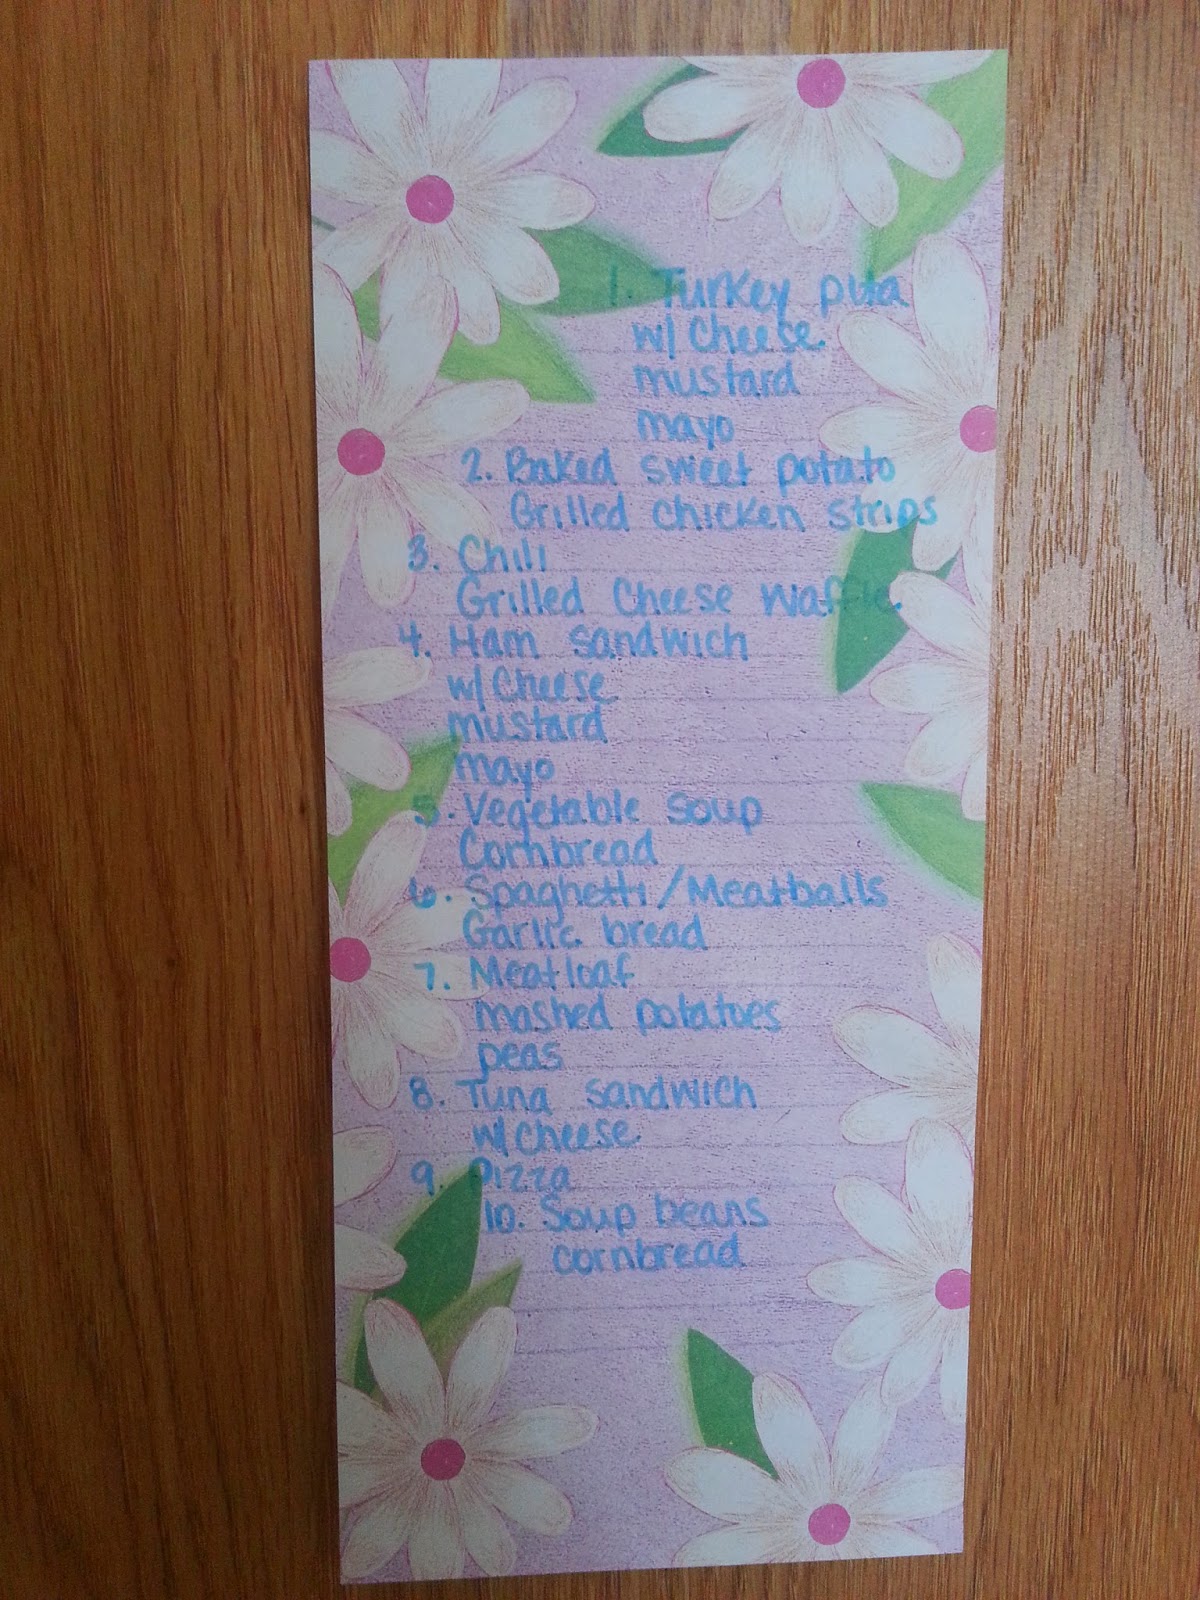 1. Turkey pita
w/ Cheese
mustard
mayo
2. Baked sweet potato
Grilled chicken strips
3. Chili
Grilled Cheese waffle
4. Ham sandwich
w/ Cheese
mustard
mayo
5. Vegetable soup
Cornbread
6. Spaghetti/Meatballs
Garlic bread
7. Meatloaf
mashed potatoes
peas
8. Tuna sandwich
w/ Cheese
9. Pizza
10. Soup beans
cornbread